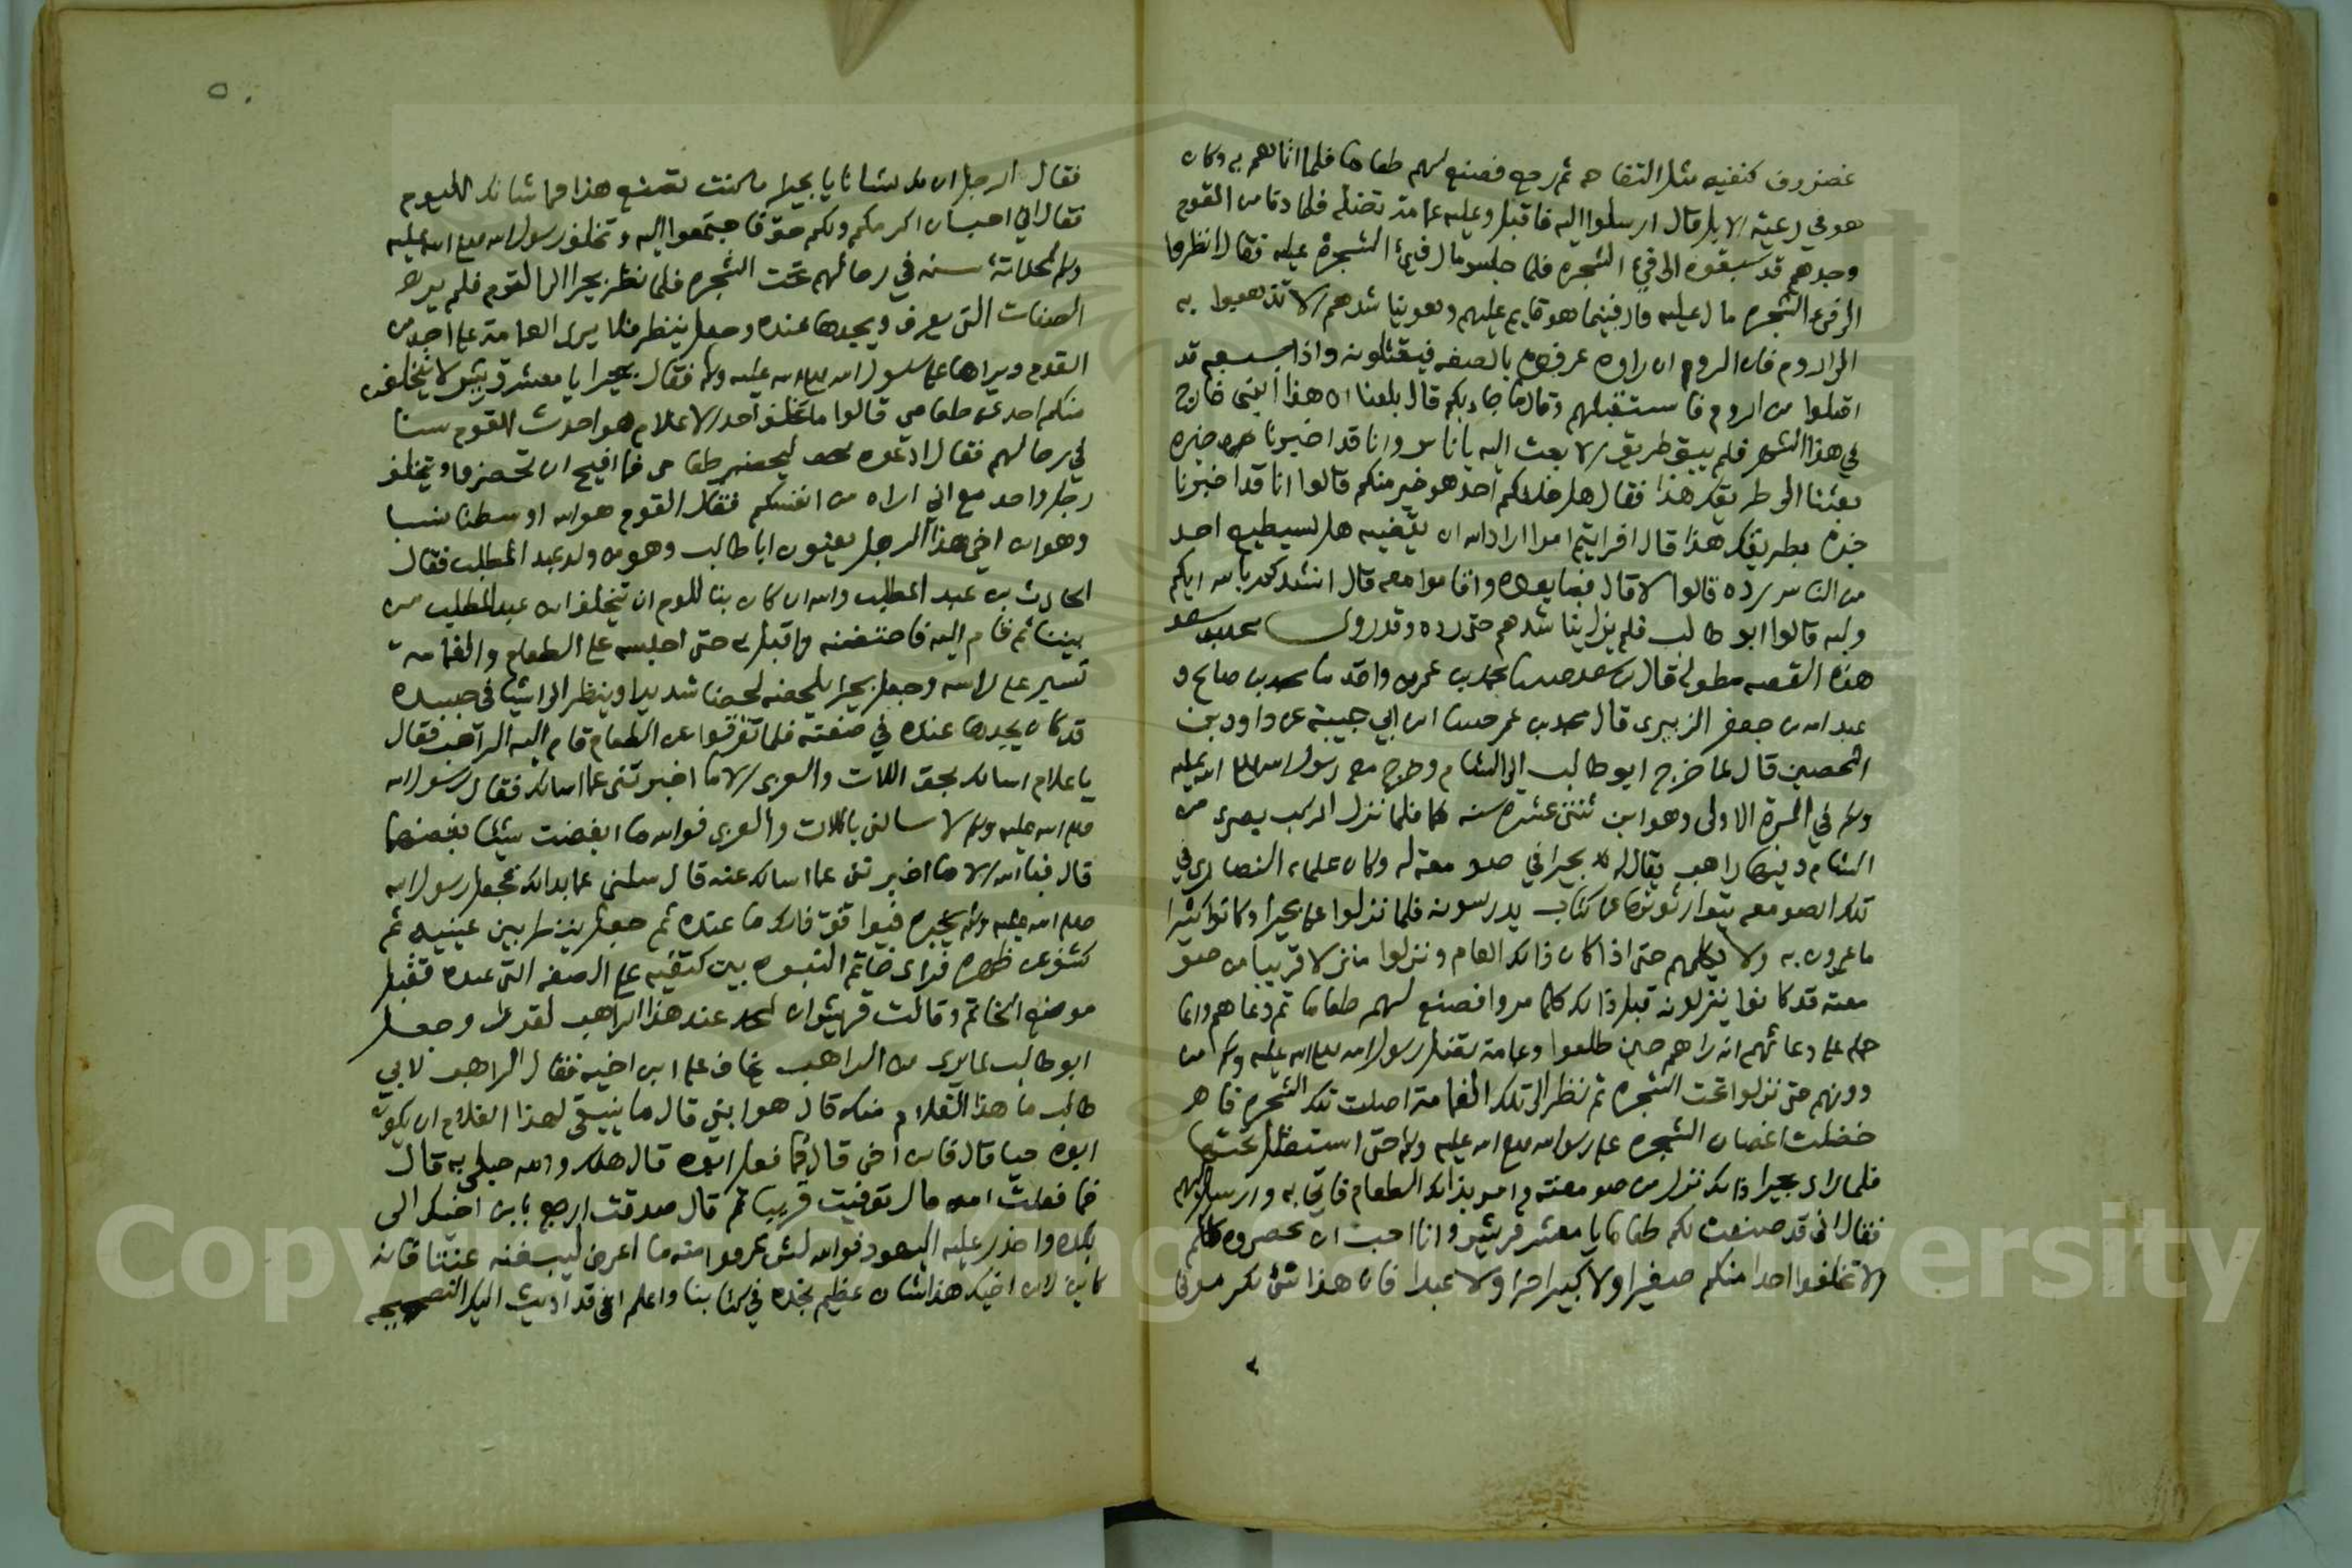 غضروف كتفيه مثل التفاحه ثم رجع فصنع لهم طعاما فلما اتاهم به وكان
هو في رعية الابل قال ارسلوا اليه فاقبل وعليه غمامة تضله فلما دنا من القوم
وجدهم قد سبقوه الى فيء الشجره فلما جلس مال فيء الشجرة عليه فقال انظروا
الى فيء الشجره مال عليه قال فبينما هو قايم عليهم وهو يناشدهم الا تذهبوا به
الى الروم فان الروم ان راوه عرفوه بالصفه فيقتلونه واذا بسبعه قد
اقبلوا من الروم فاستقبلهم وقال ما جاء بكم قال بلغنا ان هذا النبي خارج
في هذا الشهر فلم يبق طريق الا بعث اليه باناس وانا قد اخبرنا خبره
بعثنا الى طريقك هذا فقال هل خلفكم احد هو خير منكم قالوا انا قد اخبرنا
خبره بطريقك هذا قال افرايتم امرا اراد الله ان يقضيه هل يستطيع احد
من الناس رده قالوا لا قال فبايعوه واقاموا معه قال انشدكم بالله ايكم
وليه قالوا ابو طالب فلم يزل يناشدهم حتى رده وقد روى محمد بن سعد
هذه القصه مطولة قال بن سعد حدثنا محمد بن عمر بن واقد ثنا محمد بن صالح و
عبد الله بن جعفر الزبيرى قال محمد بن عمر حدثنا ابن ابي حبيبة عن داود بن
الحصين قال لما خرج ابو طالب الى الشام وخرج معه رسول الله صلى الله عليه
وسلم في المرة الاولى وهو ابن ثنتي عشره سنه فلما نزل الركب بصرى من
الشام وبها راهب يقال له بحيرا في صومعة له وكان علماء النصارى في
تلك الصومعه يتوارثونها عن كتاب يدرسونه فلما نزلوا على بحيرا وكانوا كثيرا
ما يمرون به ولا يكلمهم حتى اذا كان ذالك العام ونزلوا منزلا قريبا من صو
معته قد كانوا ينزلونه قبل ذالك كلما مروا فصنع لهم طعاما ثم دعاهم وانما
حمله على دعائهم انه راهم حين طلعوا وغمامة تضل رسول الله صلى الله عليه وسلم من
دونهم حتى نزلوا تحت الشجره ثم نظر الى تلك الغمامة اضلت تلك الشجره فاهر
خضلت اغصان الشجره على رسول الله صلى الله عليه وسلم حتى استضل تحتها
فلما راى بحيرا ذالك نزل من صومعته وامر بذالك الطعام فاتي به وارسل اليهم
فقال اني قد صنعت لكم طعاما يا معشر قريش وانا احب ان تحضروه كلكم
ولا تخلفوا احدا منكم صغيرا ولا كبيرا حرا ولا عبدا فان هذا شئ تكرموني
٥٠
فقال الرجل ان لك لشانا يا بحيرا ما كنت تصنع هذا فما شانك اليوم
فقال اني احببت ان اكرمكم ولكم حق فاجتمعوا اليه وتخلف رسول الله صلى الله عليه
وسلم لحداثة سنه في رحالهم تحت الشجره فلما نظر بحيرا الى القوم فلم يرى
الصفات التي يعرف ويجدها عنده وجعل ينظر فلا يرى الغمامة على احد من
القوم ويراها على رسول الله صلى الله عليه وسلم فقال بحيرا يا معشر قريش لا يتخلفن
منكم احد عن طعامي قالوا ما تخلف احد الا غلام هو احدث القوم سنا
في رحالهم فقال ادعوه ليحضر طعامى فما اقبح ان تحضروا ويتخلف
رجل واحد مع اني اراه من انفسكم فقال القوم هو الله اوسطنا نسبا
وهو ابن اخي هذا الرجل يعنون ابا طالب وهو من ولد عبد المطلب فقال
الحارث بن عبد المطلب والله ان كان بنا للوم ان يتخلف ابن عبد المطلب من
بيننا ثم قام اليه فاحتضنه واقبل به حتى اجلسه على الطعام والغمامة
تسير على راسه وجعل بحيرا يلحضه لحضا شديدا وينظر الى اشيا في جسده
قد كان يجدها عنده في صفته فلما تفرقوا عن الطعام قام اليه الراهب فقال
يا غلام اسالك بحق اللات والعزى الا ما اخبرتني عما اسالك فقال رسول الله
صلى الله عليه وسلم لا تسالني باللات والعزى فوالله ما ابغضت شيئا بغضهما
قال فبالله الا ما اخبرتني عما اسالك عنه قال سلني عما بدالك فجعل رسول الله
صلى الله عليه وسلم يخبره فيوافق ذالك ما عنده ثم جعل ينظر بين عينيه ثم
كشف عن ظهره فراى خاتم النبوه بين كتفيه على الصفه التي عنده فقبل
موضع الخاتم وقالت قريش ان لمحمد عند هذا الراهب لقدرا وجعل
ابو طالب لما يرى من الراهب يخاف على ابن اخيه فقال الراهب لابي
طالب ما هذا الغلام منك قال هو ابني قال ما ينبغى لهذا الغلام ان يكون
ابوه حيا قال فابن اخى قال فما فعل ابوه قال هلك وامه حبلى به قال
فما فعلت امه قال توفيت قريبا ثم قال صدقت ارجع بابن اخيك الى
بلده واحذر عليه اليهود فوالله لئن عرفوا منه ما اعرف ليبغنه عنتا فانه
كاين لابن اخيك هذا شان عظيم نجده في كتابنا واعلم اني قد اديت اليك النصيحه
Copyright © King Saud University